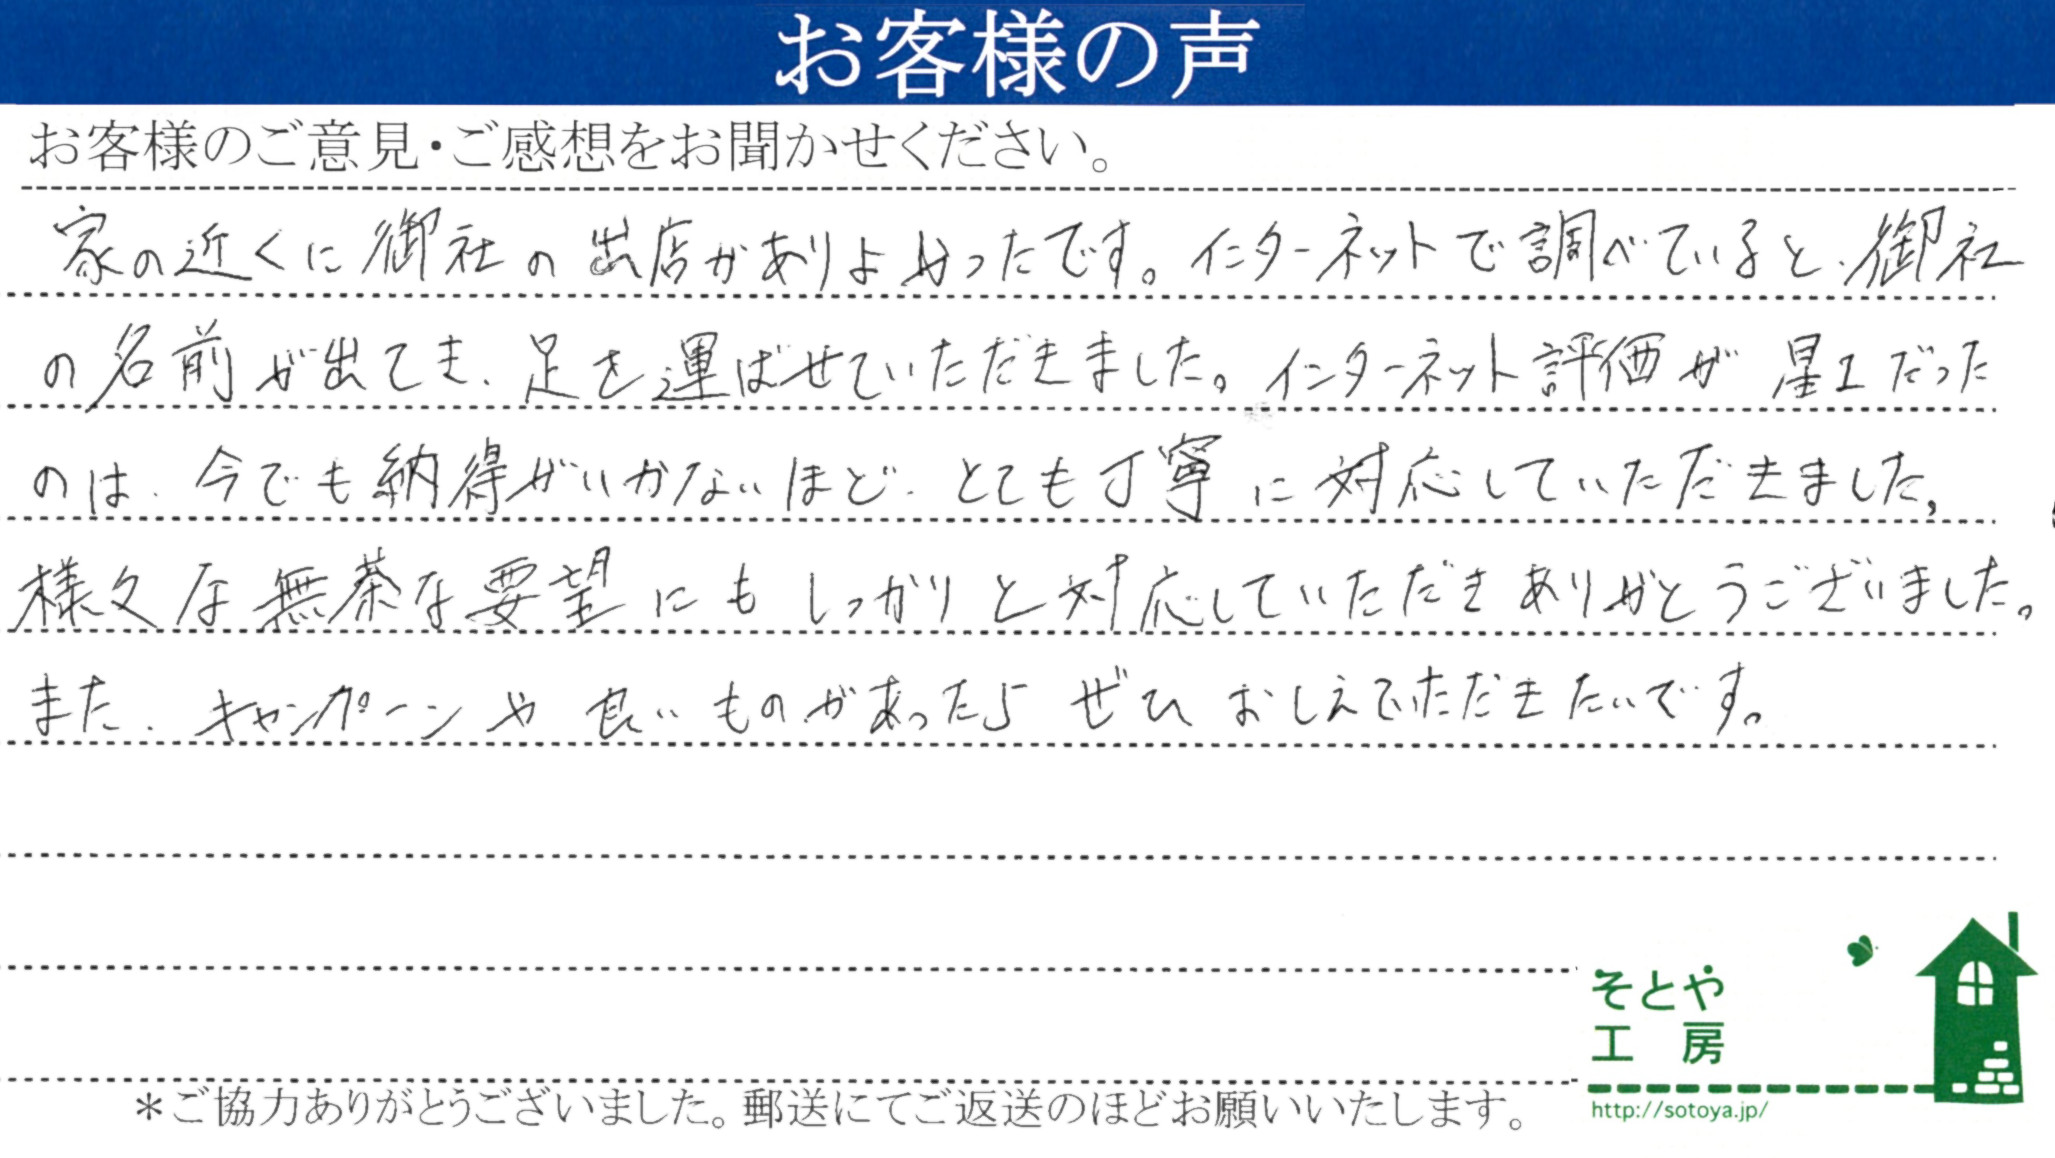 お客様の声
お客様のご意見・ご感想をお聞かせください。
家の近くに御社の出店がありよかったです。インターネットで調べていると、御社
の名前が出てき、足を運ばせていただきました。インターネット評価が星1だった
のは、今でも納得がいかないほど、とても丁寧に対応していただきました。
様々な無茶な要望にもしっかりと対応していただきありがとうございました。
また、キャンペーンや良いものがあったらぜひおしえていただきたいです。
そとや
工房
*ご協力ありがとうございました。郵送にてご返送のほどお願いいたします。
http://sotoya.jp/